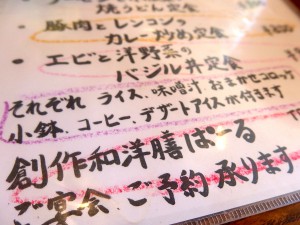 焼うどん定食
・豚肉とレンコンの
カレー炒め定食
・エビと洋野菜の
バジル丼定食
それぞれ ライス、味噌汁、おまかせコロッケ
小鉢、コーヒー、デザートアイスが付きます
創作和洋膳ばーる
ご宴会、ご予約承ります